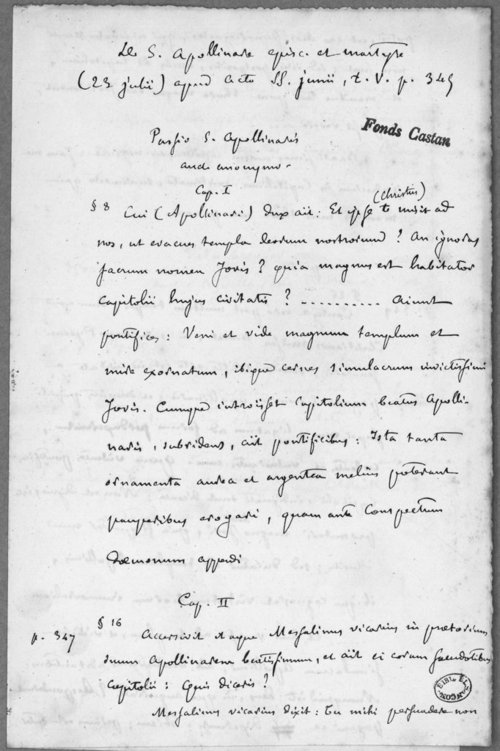 De S. Apollinare episc. et martyre
(23 julii) apud Acta SS. junii, t. V. p. 345
Fonds Castan
Passio S. Apollinaris
auct. anonymo.
Cap. I
(Christus)
§ 8 Cui (Apollinari) Dux ait: Et ipse te misit ad
nos, ut evacues templa deorum nostrorum? An ignoras
sacrum nomen Jovis? quia magnus est habitator
Capitolii hujus civitatis? .......... Aiunt
pontifices: Veni et vide magnum templum et
mire exornatum, ibique cernes simulacrum invictissimi
Jovis. Cumque introïsset Capitolium beatus Apolli-
naris, subridens, ait pontificibus: Ista tanta
ornamenta aurea et argentea melius poterant
pauperibus erogari, quam ante conspectum
dæmonum appendi
Cap. II
p. 347
§ 16 Accersivit itaque Messalinus vicarius in prætorium
suum Apollinarem beatissimum, et ait ei coram sacerdotibus
Capitolii: Quis diceris?
Messalinus vicarius dixit: Tu mihi persuadere non